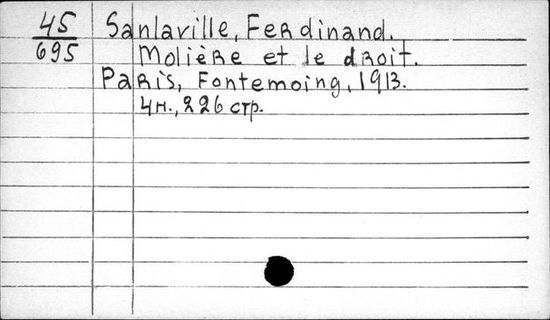 45 Sanlaville, Ferdinand.
695 Molière et le droit.
Paris, Fontemoing, 1913.
4н., 226 стр.